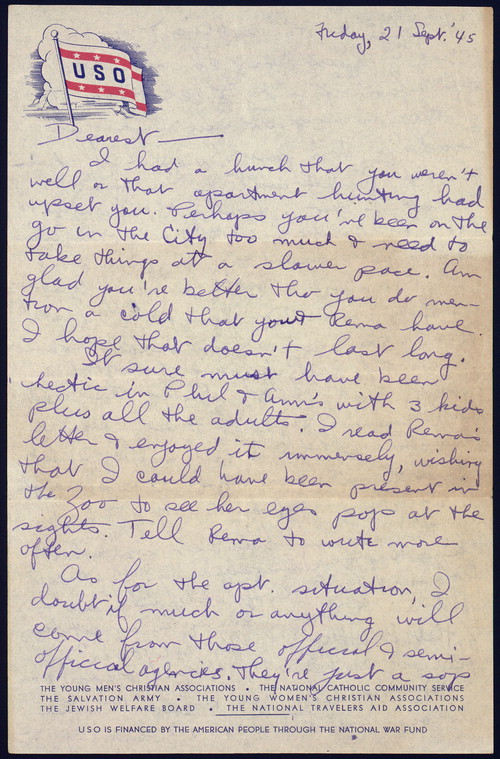 USO
Friday, 21 Sept. '45
Dearest —
I had a hunch that you weren't
well or that apartment hunting had
upset you. Perhaps you've been on the
go in the City too much & need to
take things at a slower pace. Am
glad you're better tho you do men-
tion a cold that you & Rema have.
I hope that doesn't last long.
It sure must have been
hectic in Phil & Ann's with 3 kids
plus all the adults. I read Rema's
letter & enjoyed it immensely, wishing
that I could have been present in
the Zoo to see her eyes pop at the
sights. Tell Rema to write more
often.
As for the apt. situation, I
doubt if much or anything will
come from those official & semi-
official agencies. They're just a sop
THE YOUNG MEN'S CHRISTIAN ASSOCIATIONS • THE NATIONAL CATHOLIC COMMUNITY SERVICE
THE SALVATION ARMY • THE YOUNG WOMEN'S CHRISTIAN ASSOCIATIONS
THE JEWISH WELFARE BOARD • THE NATIONAL TRAVELERS AID ASSOCIATION
USO IS FINANCED BY THE AMERICAN PEOPLE THROUGH THE NATIONAL WAR FUND